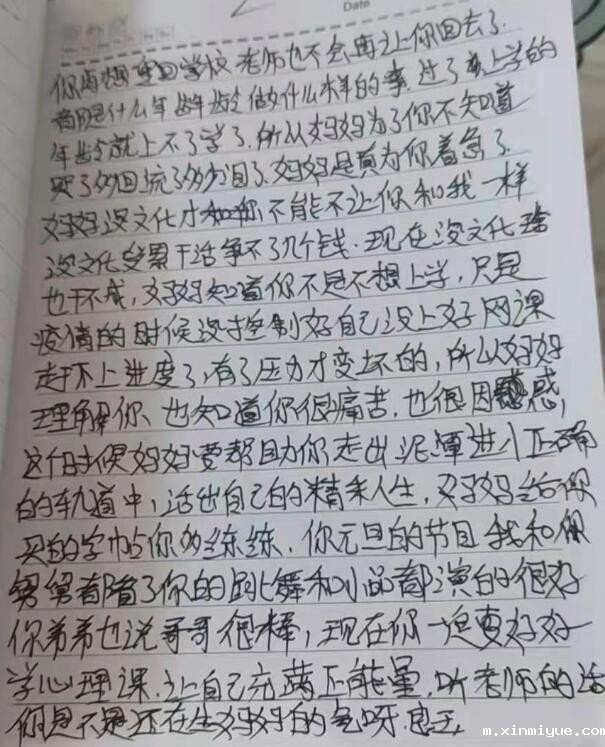 Date
你再想重回学校老师也不会再让你回去了.
什么年龄段做什么样的事.过了上学的
年龄就上不了学了.所以妈妈为了你不知道
哭了多少回流了多少泪了.妈妈是真为你着急了
妈妈没文化才和你不能不让你和我一样
没文化受累干活争不了几个钱.现在没文化啥
也干不成,妈妈知道你不是不想上学,只是
疫情的时候没控制好自己没上好网课
赶不上进度了,有了压力才变坏的,所以妈妈
理解你、也知道你很痛苦.也很困惑,
这个时候妈妈要帮助你走出泥潭进入正确
的轨道中,活出自己的精采人生,妈妈给你
买的字帖你多练练.你元旦的节目我和你
舅舅都看了你的跳舞和小品都演的很好
你弟弟也说哥哥很棒,现在你一定要好好
学心理课.让自己充满正能量,听老师的话
你是不是还在生妈妈的气呀.
m.xinmiyue.com